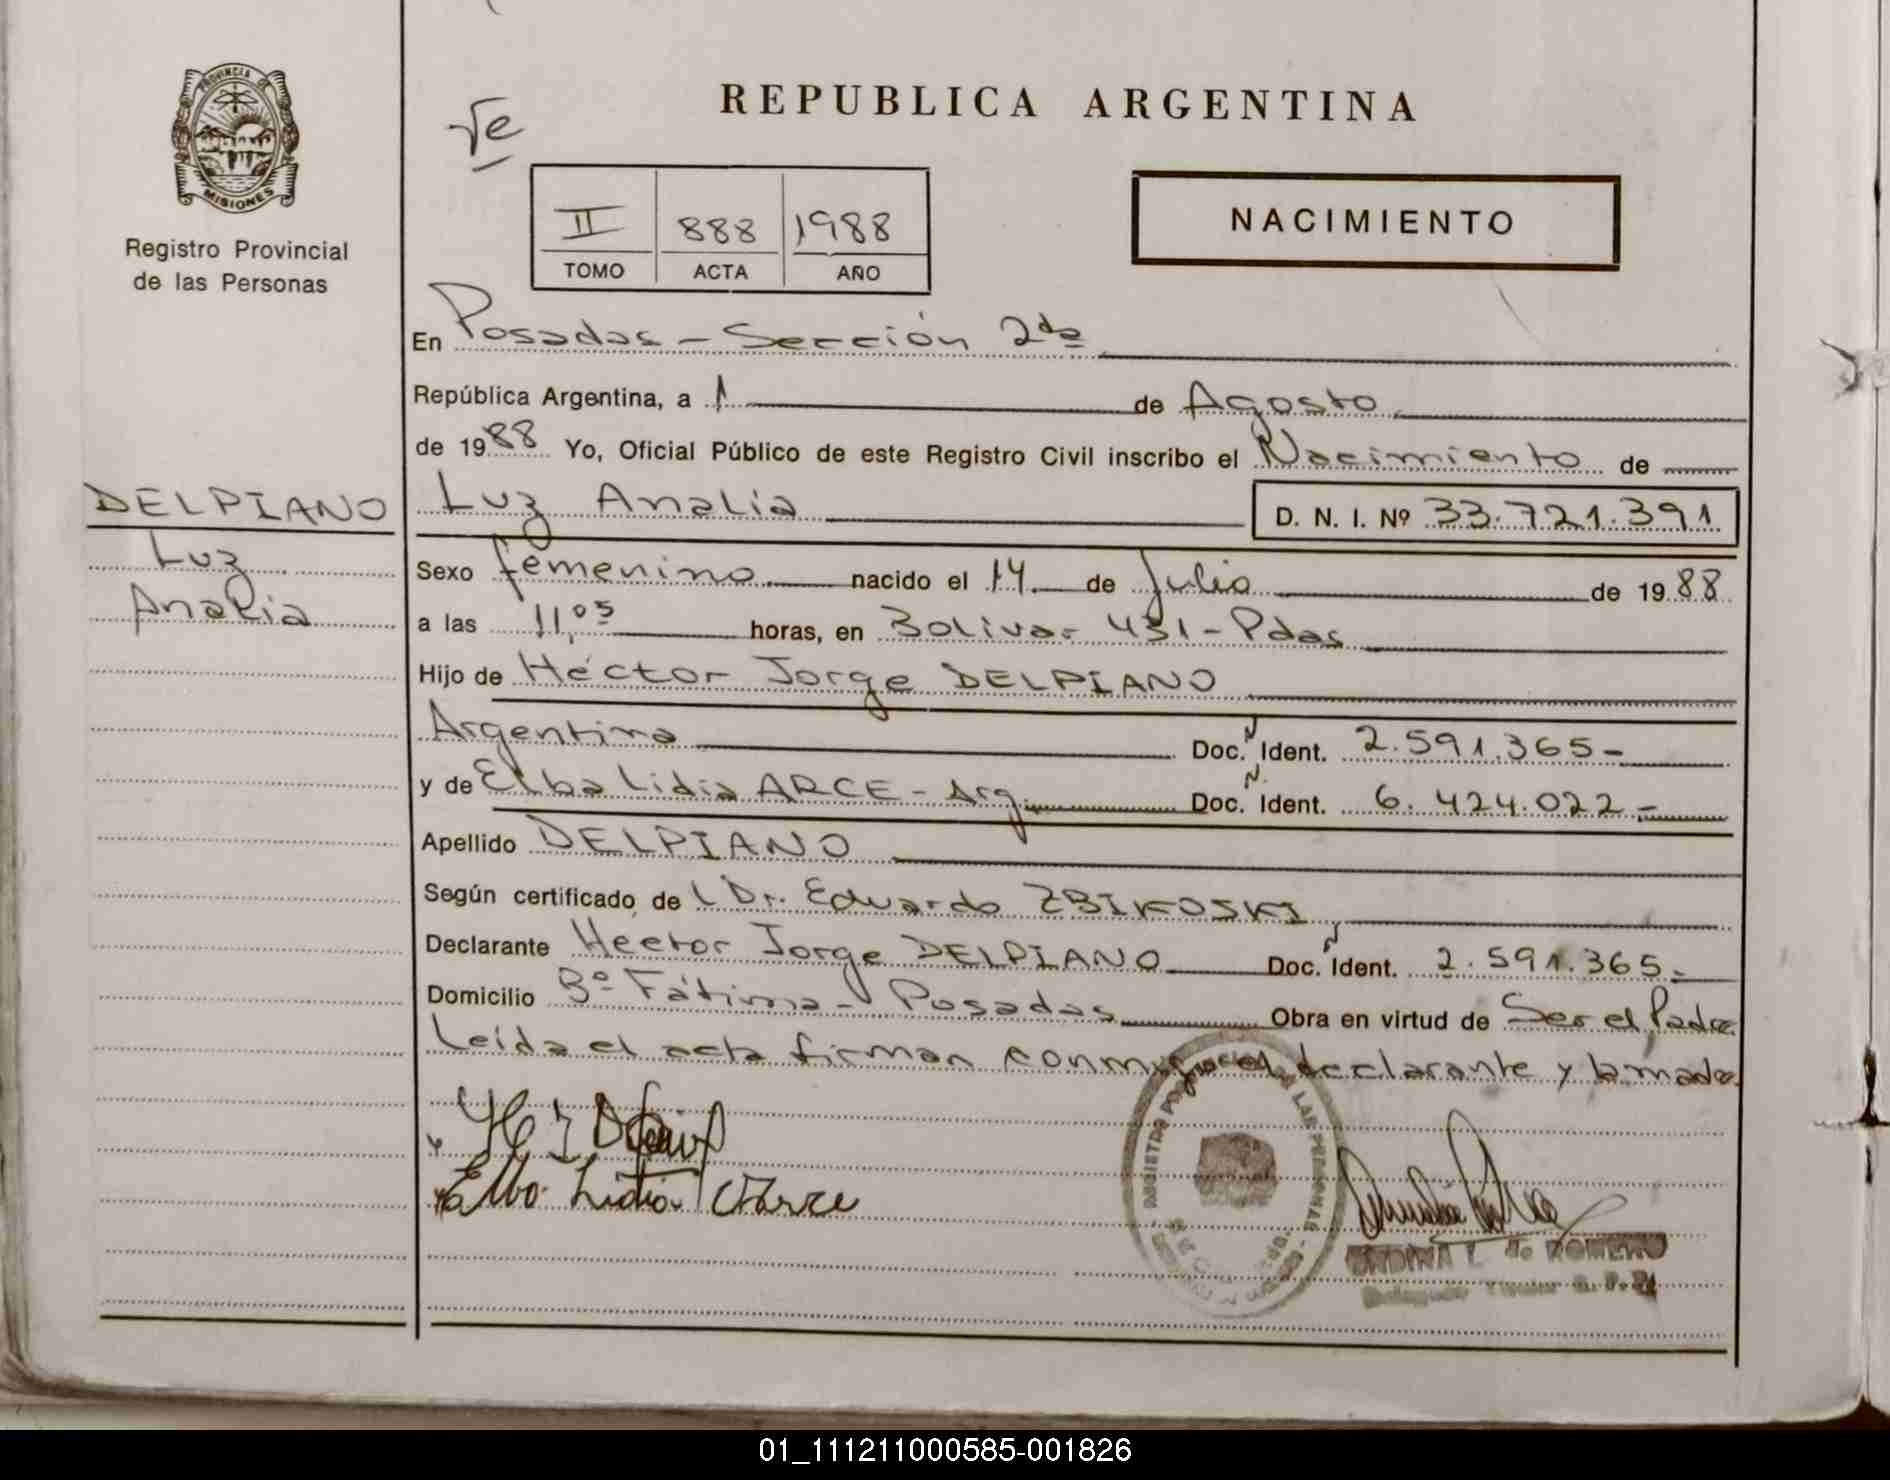 PROVINCIA DE
MISIONES
Registro Provincial
de las Personas
REPUBLICA ARGENTINA
NACIMIENTO
II 888 1988
TOMO ACTA AÑO
En Posadas - Sección 2da
República Argentina, a 1 de Agosto
de 1988 Yo, Oficial Público de este Registro Civil inscribo el Nacimiento de
DELPIANO
Luz
Analia
Luz Analia D. N. I. Nº 33.721.391
Sexo femenino nacido el 14 de Julio de 1988
a las 11,05 horas, en Bolivar 431 - Pdas
Hijo de Héctor Jorge DELPIANO
Argentina Doc. N Ident. 2.591.365-
y de Elba Lidia ARCE - Arg. Doc. N Ident. 6.424.022.-
Apellido DELPIANO
Según certificado de l Dr. Eduardo ZBIKOSKI
Declarante Hector Jorge DELPIANO Doc. N Ident. 2.591.365.-
Domicilio Bº Fátima - Posadas Obra en virtud de Ser el Padre
Leída el acta firman conmigo el declarante y la madre
Elba Lidia Arce
ONDINA L. de ROMERO
01_111211000585-001826